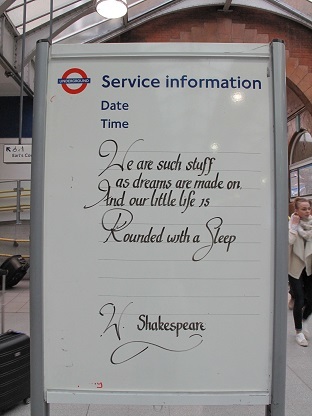 UNDERGROUND
Service information
Date
Time
We are such stuff
as dreams are made on
And our little life is
Rounded with a Sleep
W. Shakespeare